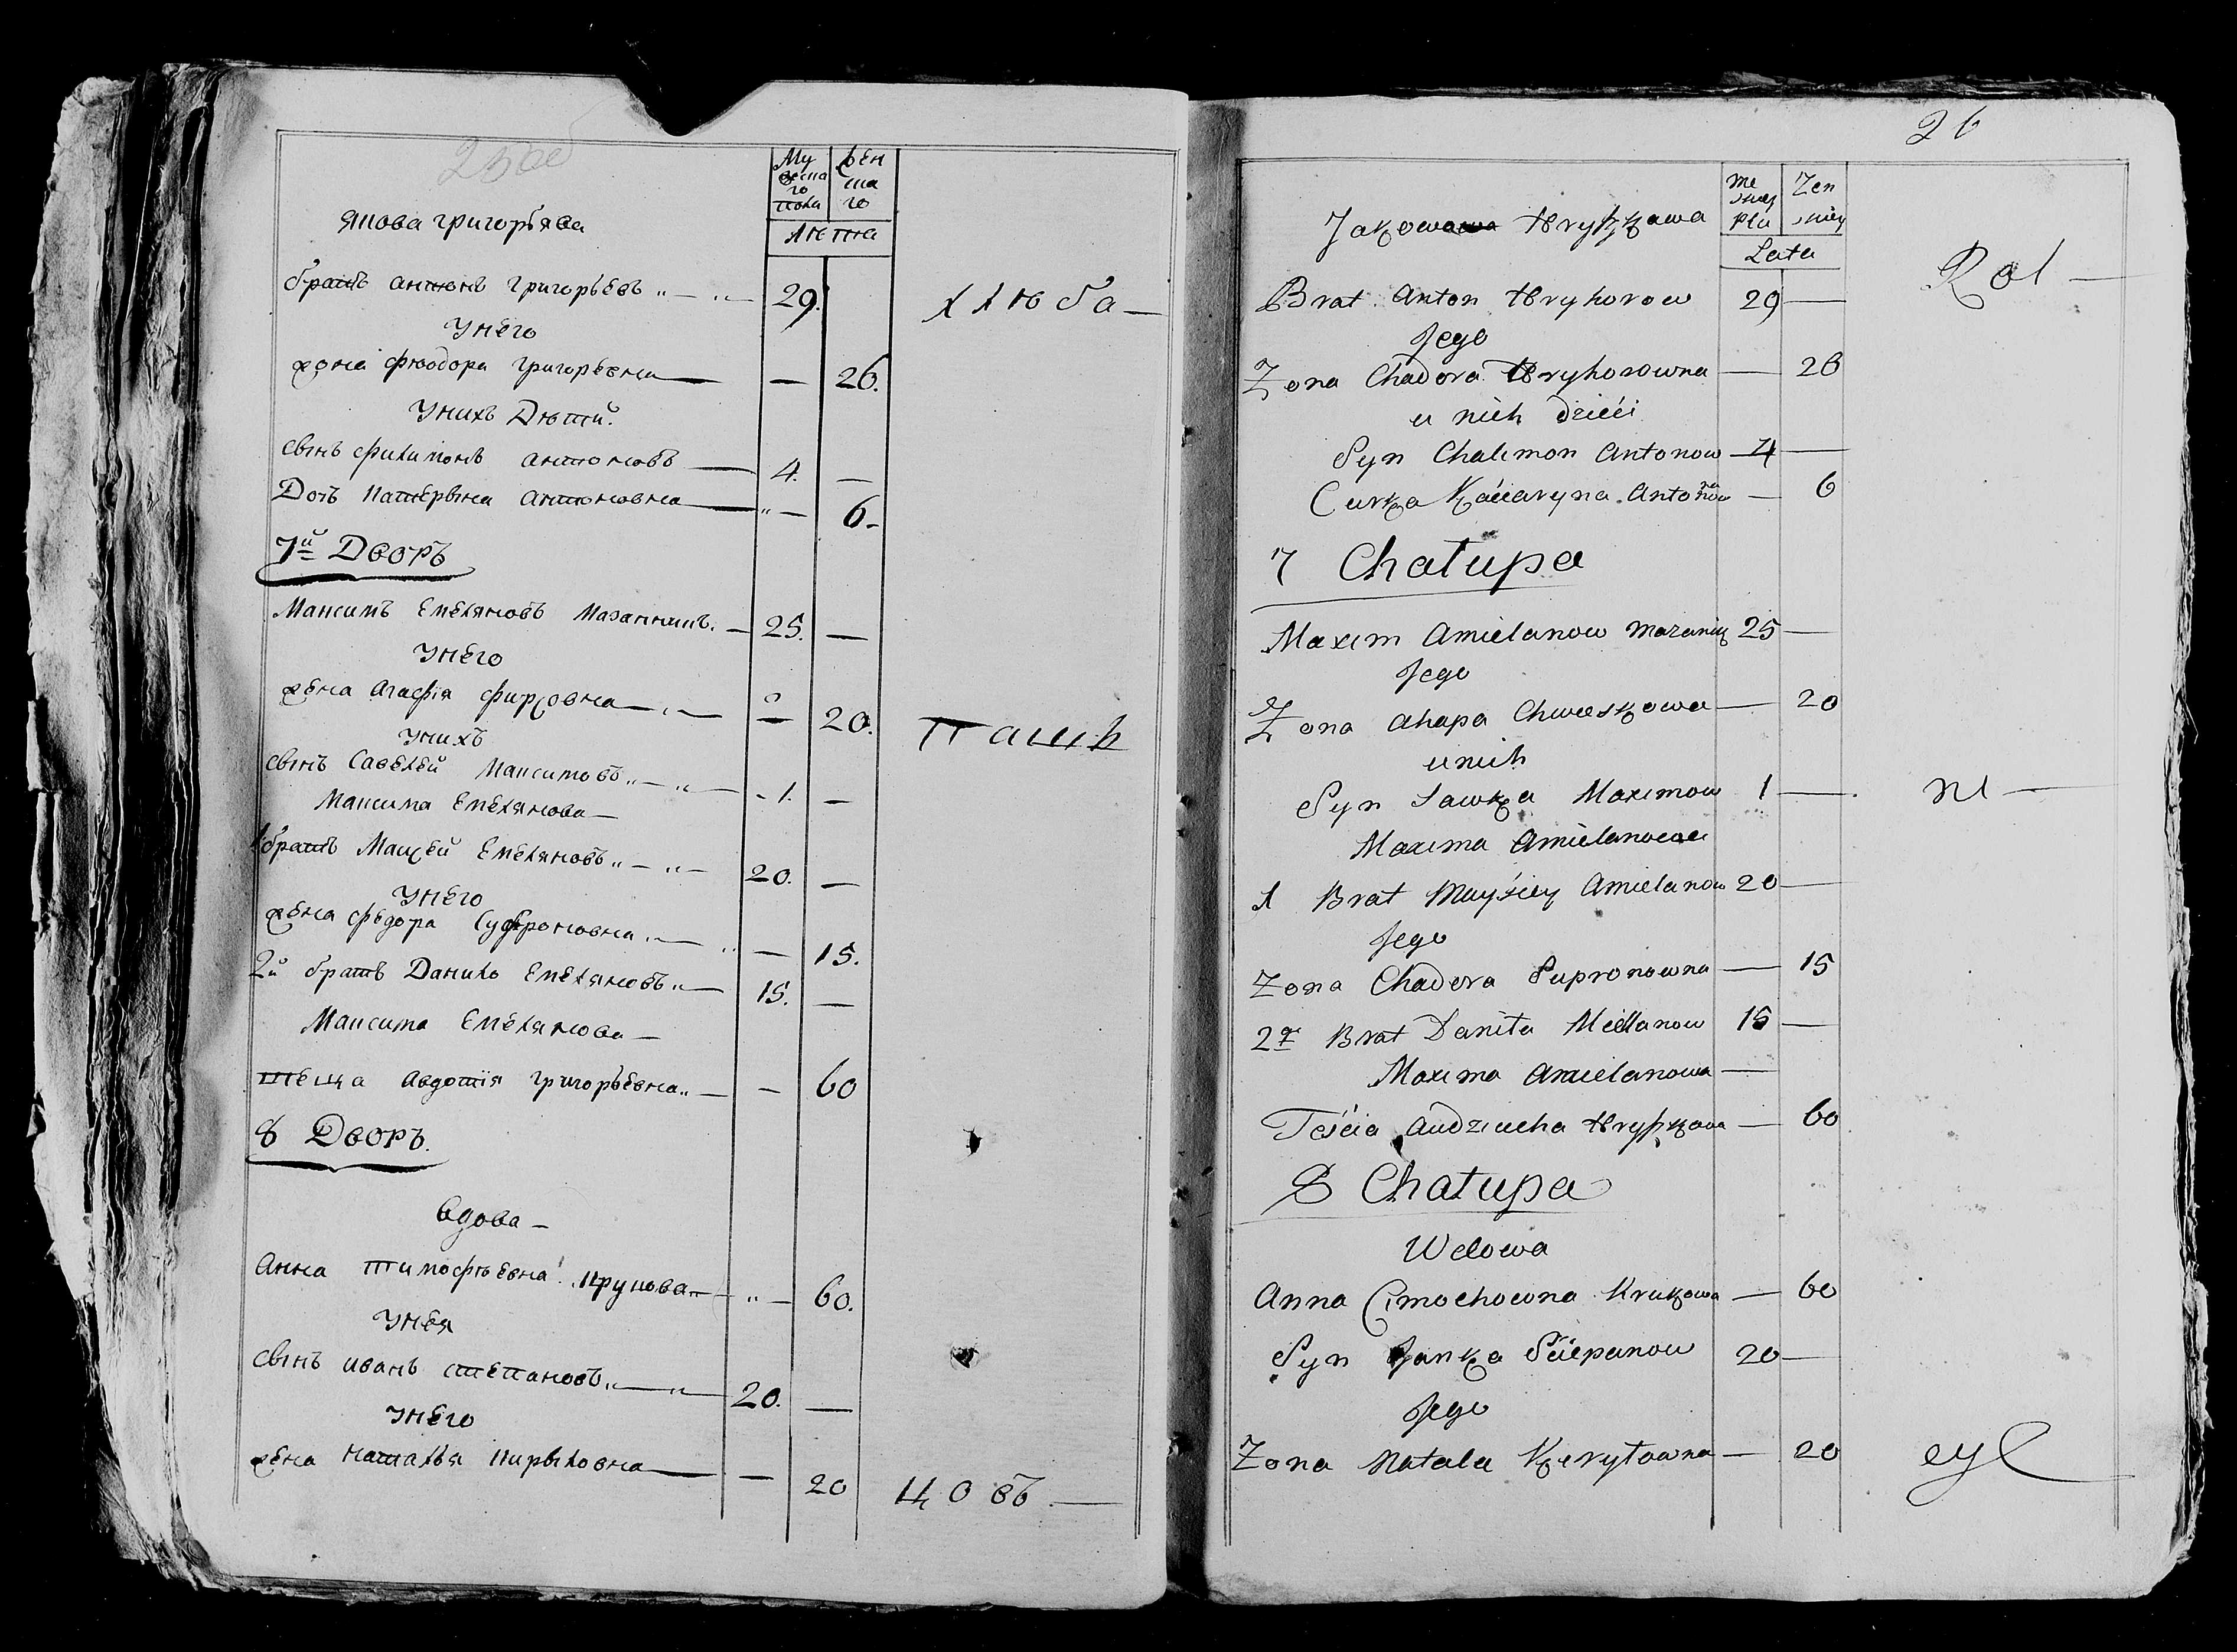 25об
Му
жеска
го
пола
жен
ска
го
Лѣта
Якова Григорьева
братъ Антонъ Григорьевъ „ — „ — 29.
Унего
жона Фѣодора Григорьевна — — 26.
Унихъ Дѣтй
сынъ Филимонъ Антоновъ — 4. —
Дочь Катерына Антоновна — „ — 6.
хлюба —
7й Дворъ
Максимъ Емельяновъ Мазаникъ. — 25. —
Унего
жена Агафія — — 20.
Унихъ
пашѣ
сынъ Савелей Максимовъ „ — „ — 1. —
Максима Емелянова —
1 братъ Моисей Емеляновъ „ — „ — 20. —
Унего
жена Федора Супроновна „ — „ — 15.
2й братъ Данило Емеляновъ „ — 15. —
Максима Емелянова —
теща Авдотія Григорьевна „ — — 60
8 Дворъ.
Вдова —
Анна Тимофѣевна Крукова — „ — 60.
Унея
сынъ Иванъ Степановъ „ — „ — 20. —
Унего
жена Наталья Кирыловна — — 20
цовъ —
26
me
skiey
płu
Zen
skiey
Lata
Jakowowa Hryszkowa
Rol —
Brat Anton Hryhorow 29 —
Jego
Zona Chadora Hryhorowna — 26
u nich dzieci
Syn Chalimon Antonow 4 —
Curka Kaciaryna Antonowna — 6
7 Chałupa
Maxim Amielanow Mazanik 25 —
Jego
Zona Ahapa Chwieskowa — 20
u nich
Syn Sawka Maximow 1 —
ni —
Maxima Amielanowa
1 Brat Mayśiey Amielanow 20 —
Jego
Zona Chadora Supronowna — 15
2gi Brat Daniła Mielanow 15 —
Maxima Amielanowa —
Teścia Audziucha Hryszkowa — 60
8 Chałupa
Wdowa
Anna Cimochowna Krukowa — 60
Syn Janka Sciepanow 20 —
Jego
Zona Natala Kieryłowna — 20
cyl